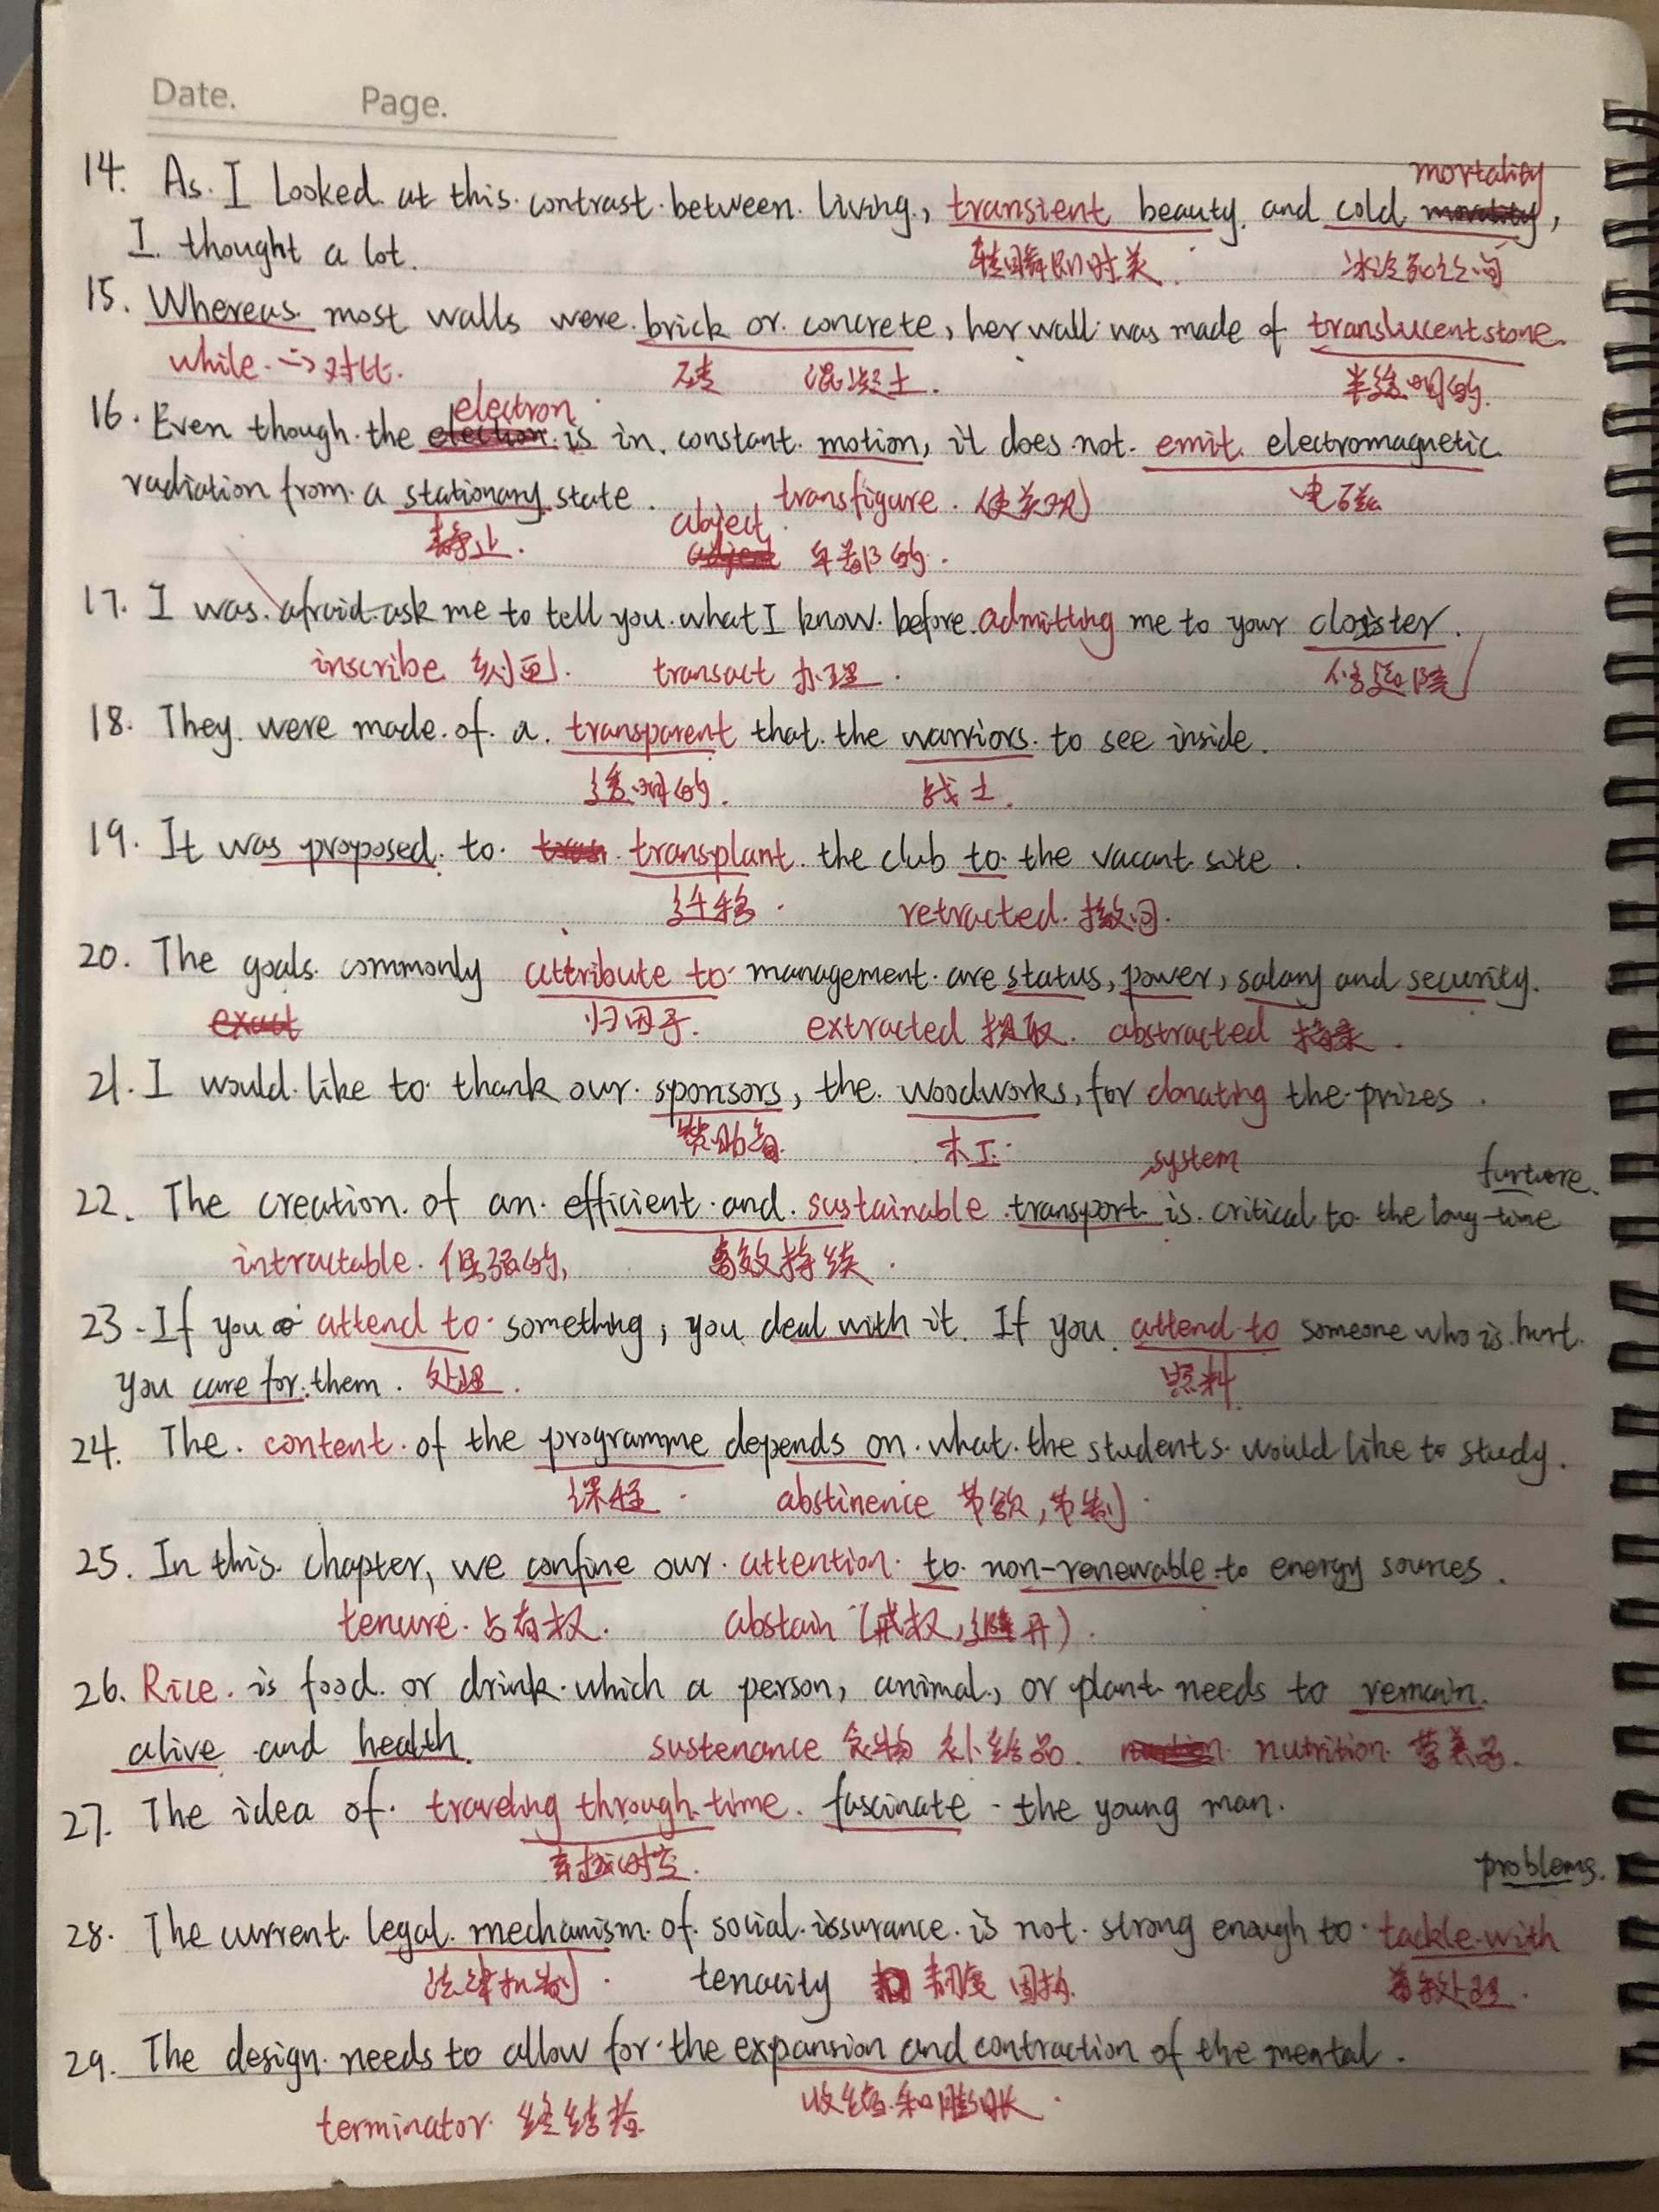 Date. Page.
mortality
14. As I looked at this contrast between living, transient beauty and cold morality,
I thought a lot.
转瞬即时美 冰冷和之间
15. Whereas most walls were brick or concrete, her wall was made of translucent stone.
while → 对比. 砖 混凝土. 半透明的.
electron
16. Even though the election is in constant motion, it does not emit electromagnetic
radiation from a stationary state. transfigure. 使美观 电磁
静止. abject
卑鄙的.
17. I was afraid ask me to tell you what I know before admitting me to your cloister.
inscribe 刻画. transact 办理. 修道院
18. They were made of a transparent that the warriors to see inside.
透明的. 战士.
19. It was proposed to transplant the club to the vacant site.
迁移. retracted. 撤回.
20. The goals commonly attribute to management are status, power, salary and security.
exact 归因于. extracted 提取. abstracted 摘录.
21. I would like to thank our sponsors, the woodworks, for donating the prizes.
赞助者. 木工.
system furture.
22. The creation of an efficient and sustainable transport is critical to the long-time
intractable. 倔强的, 高效持续.
23. If you attend to something, you deal with it. If you attend to someone who is hurt.
you care for them. 处理. 照料.
24. The content of the programme depends on what the students would like to study.
课程. abstinence 节欲, 节制.
25. In this chapter, we confine our attention to non-renewable to energy sources.
tenure. 占有权. abstain (戒权, 避开).
26. Rice is food or drink which a person, animal, or plant needs to remain
alive and health. sustenance 食物 补给品. nutrition 营养品.
27. The idea of traveling through time fascinate the young man.
穿越时空.
problems.
28. The current legal mechanism of social issurance is not strong enough to tackle with
法律机制. tenacity 韧度 固执. 有效处理.
29. The design needs to allow for the expansion and contraction of the mental.
terminator 终结者 收缩和膨胀.